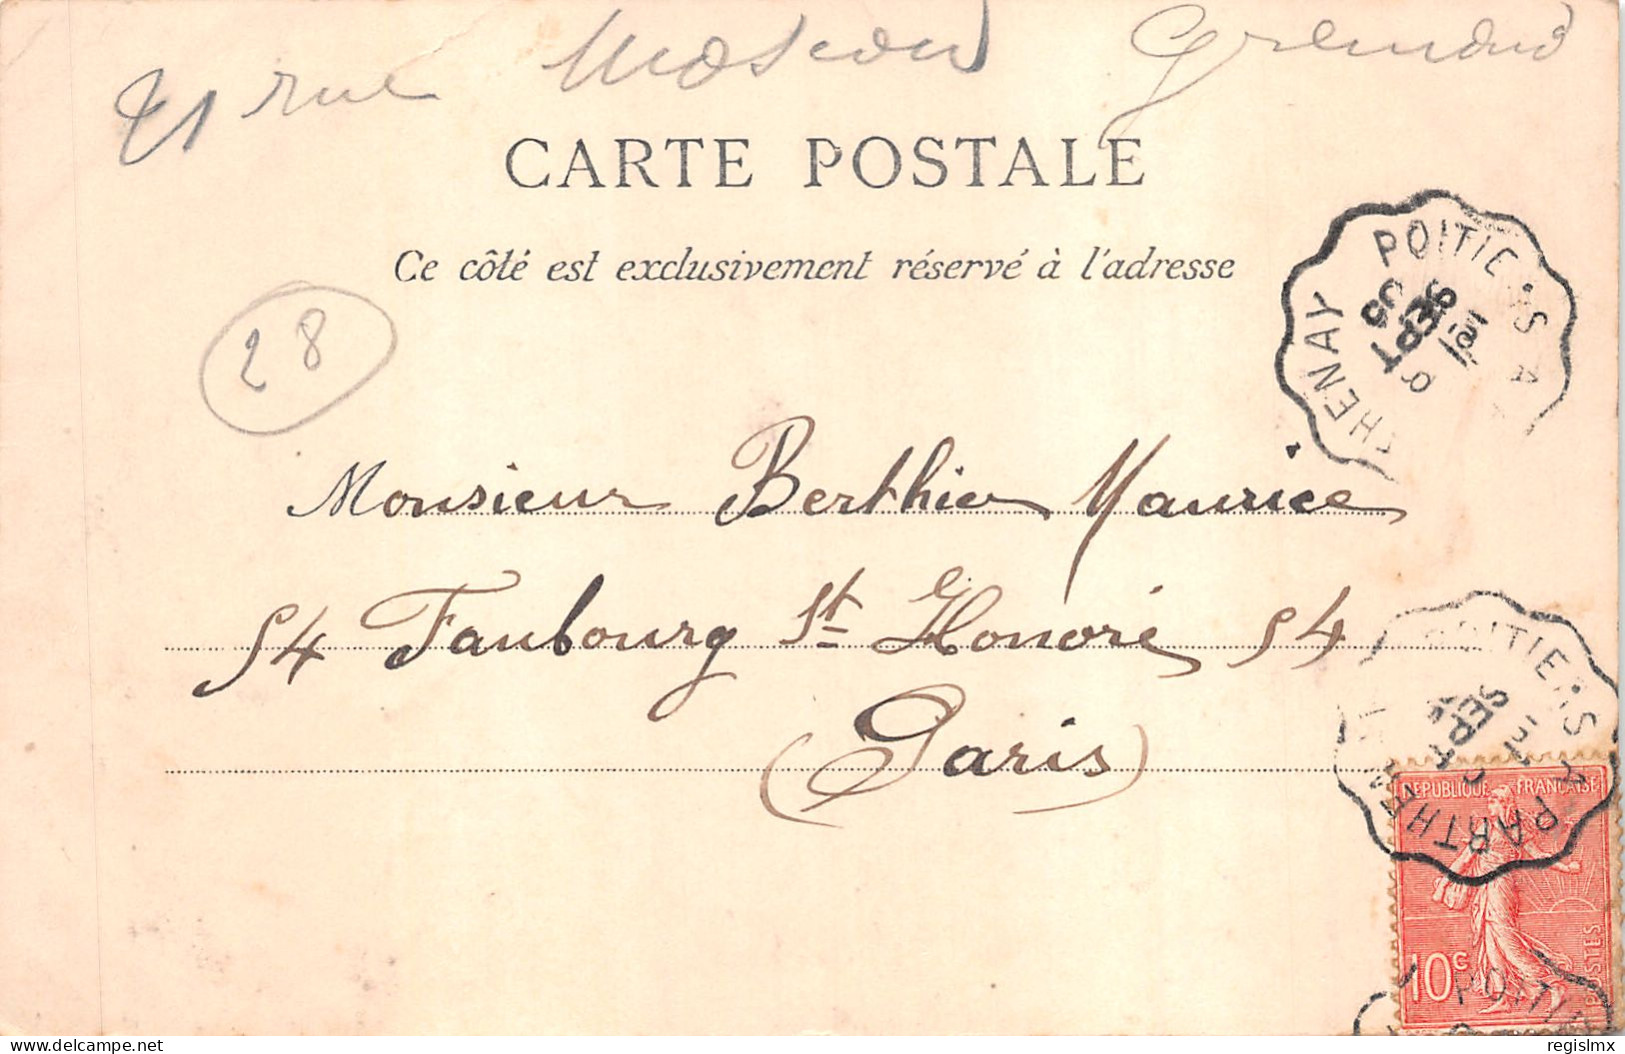 21 rue Moscou
CARTE POSTALE
Ce côté est exclusivement réservé à l'adresse
POITIERS A
THENAY
SEPT
05
28
Monsieur Berthier Maurice
54 Faubourg St Honoré 54
(Paris)
POITIERS A PARTHENAY
SEPT
REPUBLIQUE FRANÇAISE
10 C
POSTES
POITIE
Delcampe.net
regislmx